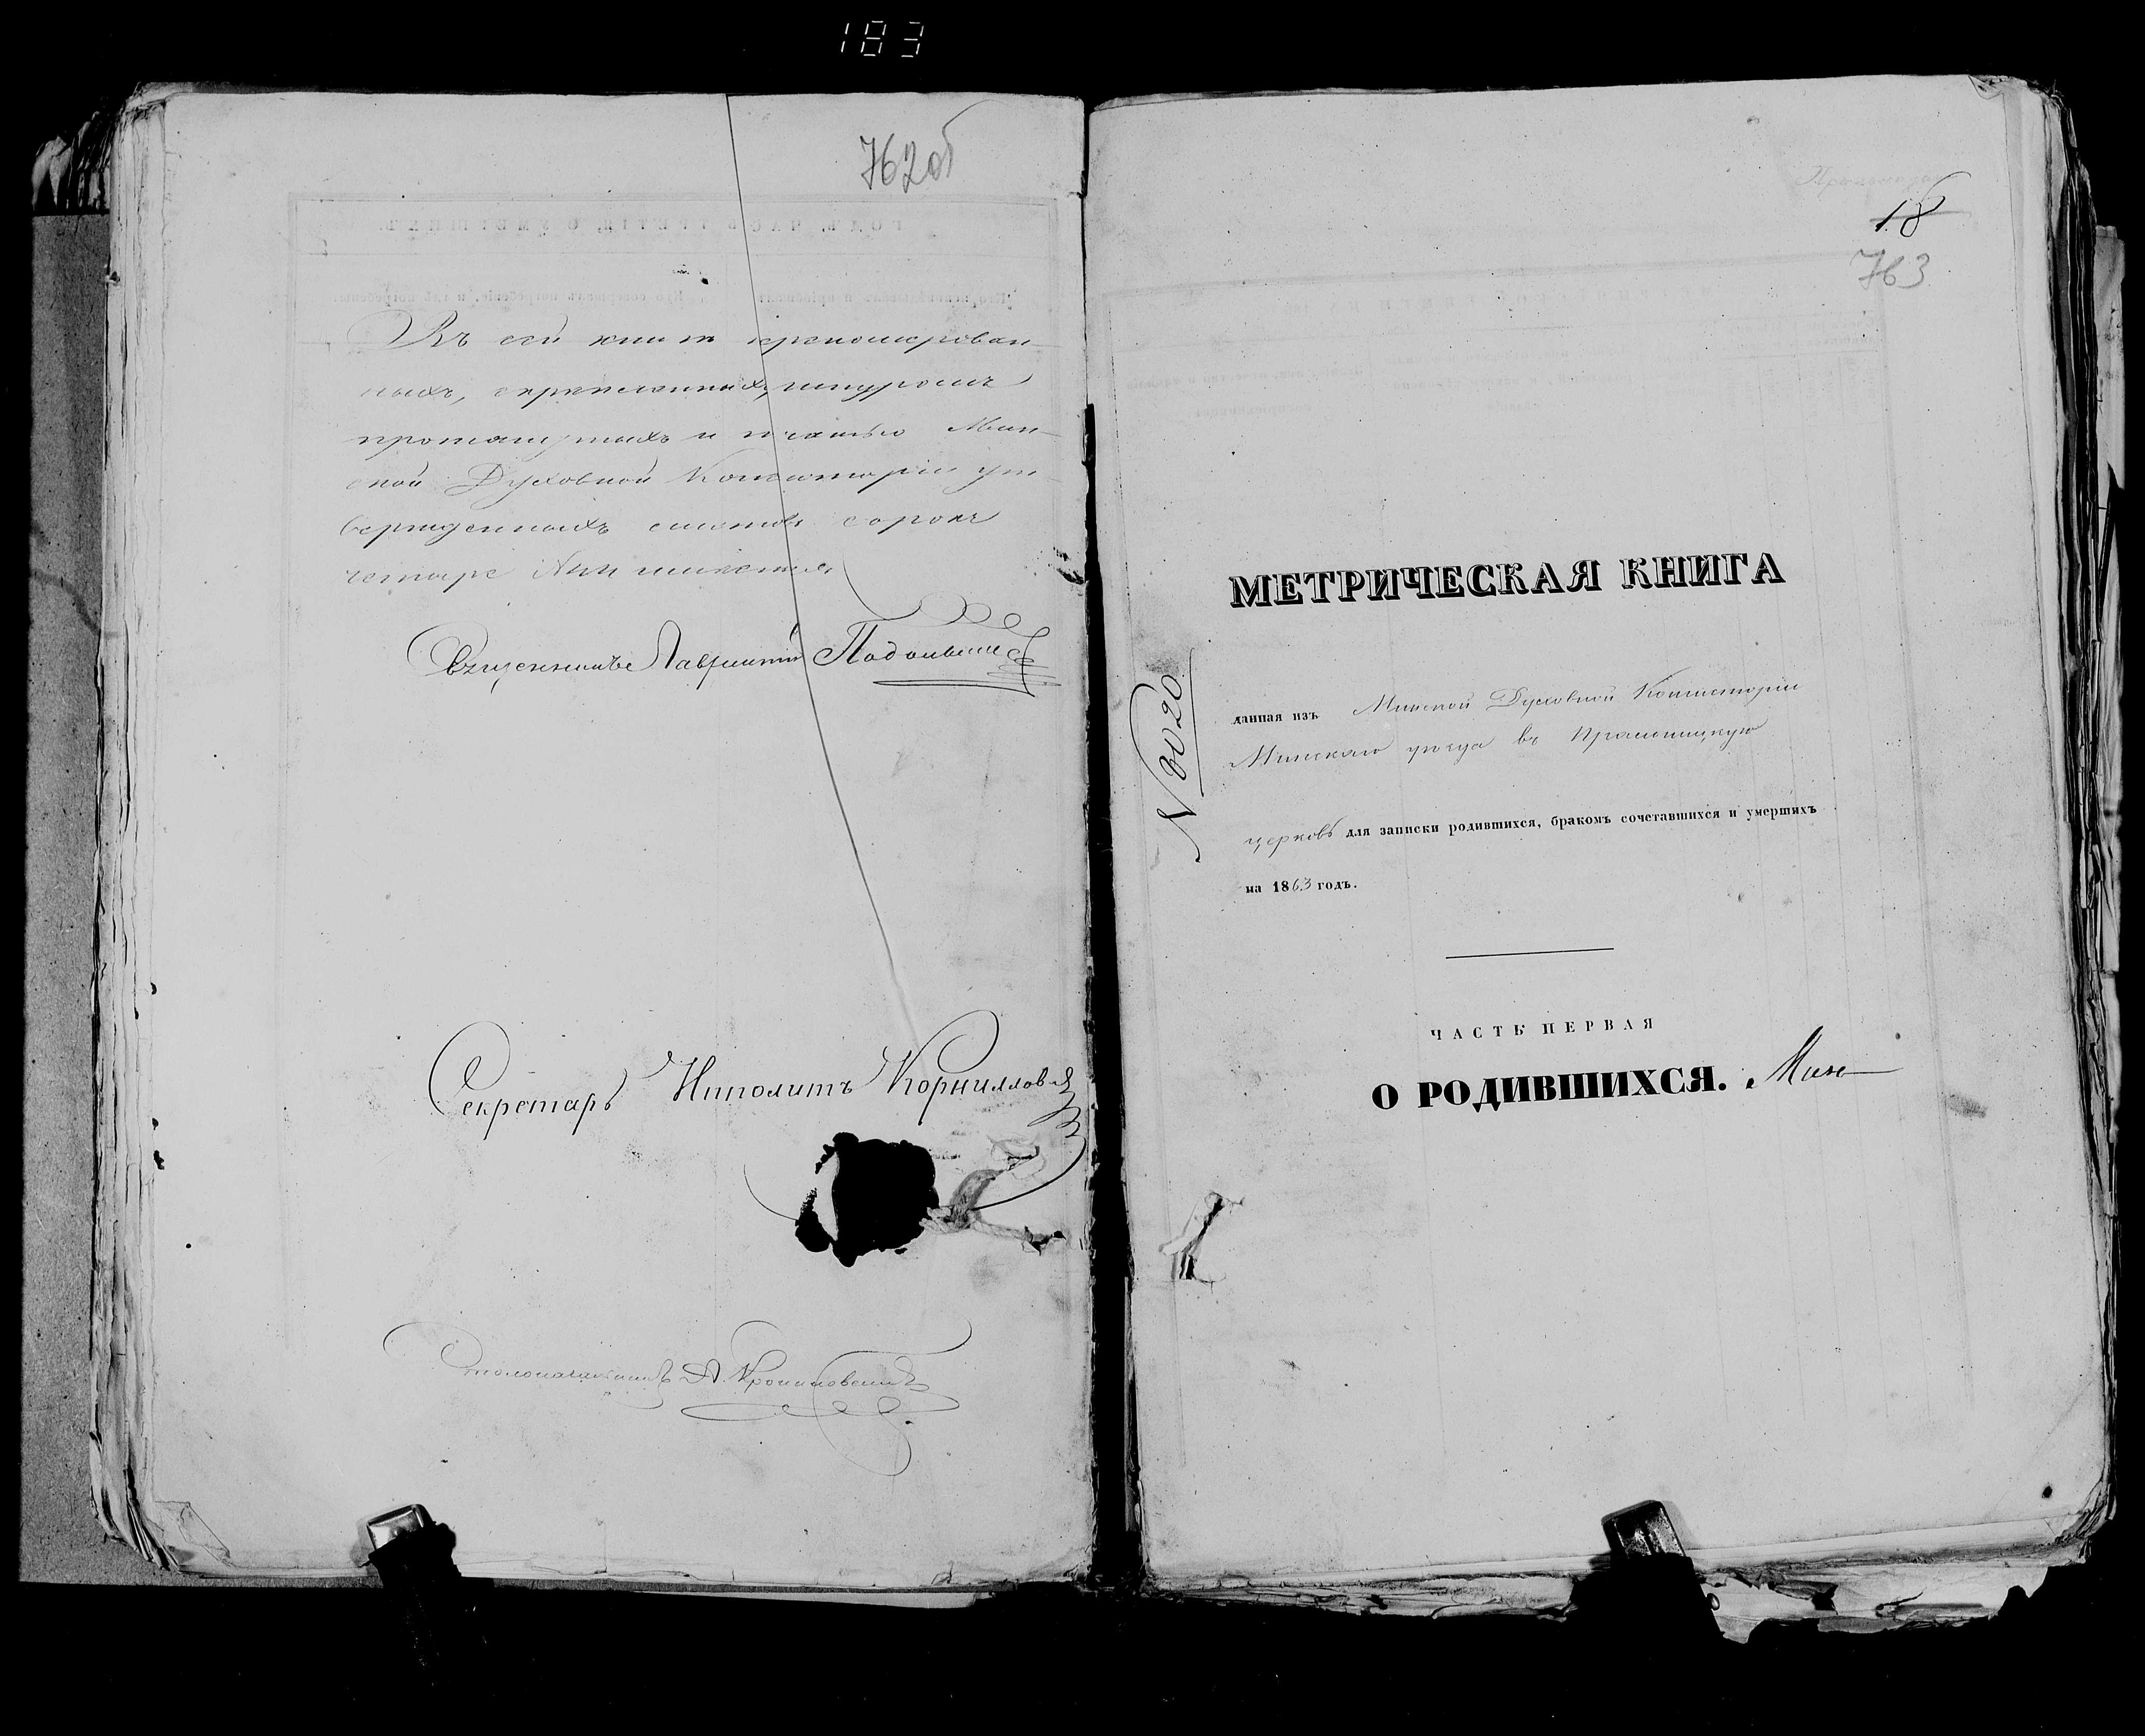 183
762об
Въ сей книгѣ прономерован-
ныхъ, скрепленныхъ, шнуромъ
протянутыхъ и печатью Мин-
ской Духовной Консисторіи ут-
вержденныхъ листовъ сорокъ
четыре
Священникъ Лаврентій
Секретарь Ипполитъ Корниллов
Столоначальникъ А.
18
763
МЕТРИЧЕСКАЯ КНИГА
N 3020
данная изъ Минской Духовной Консисторіи
Минскаго уѣзда въ
церковь для записки родившихся, бракомъ сочетавшихся и умершихъ
на 1863 годъ.
ЧАСТЬ ПЕРВАЯ
О РОДИВШИХСЯ. Мин